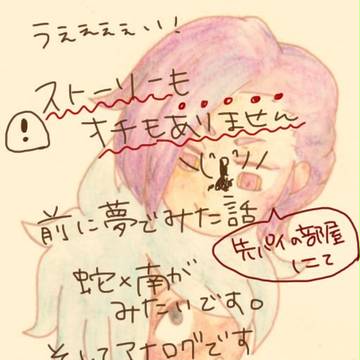 うぇぇぇぇい!!
ストーリーも
オチもありません
!
前に夢でみた話
先パイの部屋
にて
蛇×南が
みたいです。
そしてアナログです